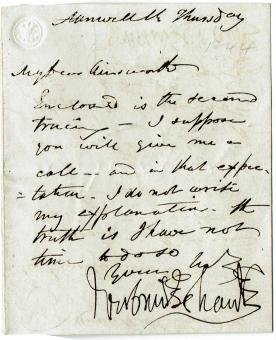 Hanwell Thursday
My dear Ainsworth
Enclosed is the second
tracing — I suppose
you will give me a
call — and in that expec-
=tation. I do not write
my explanation. The
truth is I have not
time to do so
Yours